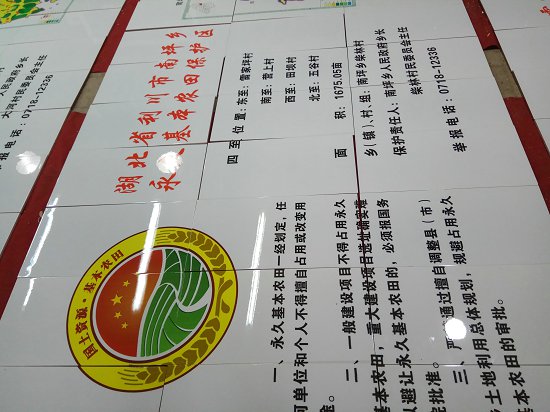 人民政府乡长
村民委员会主任
报电话:0718-12336
湖北省利川市南坪乡
永久基本农田保护区
四至位置:东至:家坪村
南至:营上村
西至:田坝村
北至:五谷村
面积:1675.05亩
乡(镇)、村、组:南坪乡柴林村
保护责任人:南坪乡人民政府乡长
柴林村民委员会主任
举报电话:0718-12336
国土资源·基本农田
一、永久基本农田一经划定,任
何单位和个人不得擅自占用或改变用
途。
二、一般建设项目不得占用永久
基本农田,重大建设项目选址确实难
以避让永久基本农田的,必须报国务
院批准。
三、严禁通过擅自调整县(市)
乡土地利用总体规划,规避占用永久
基本农田的审批。